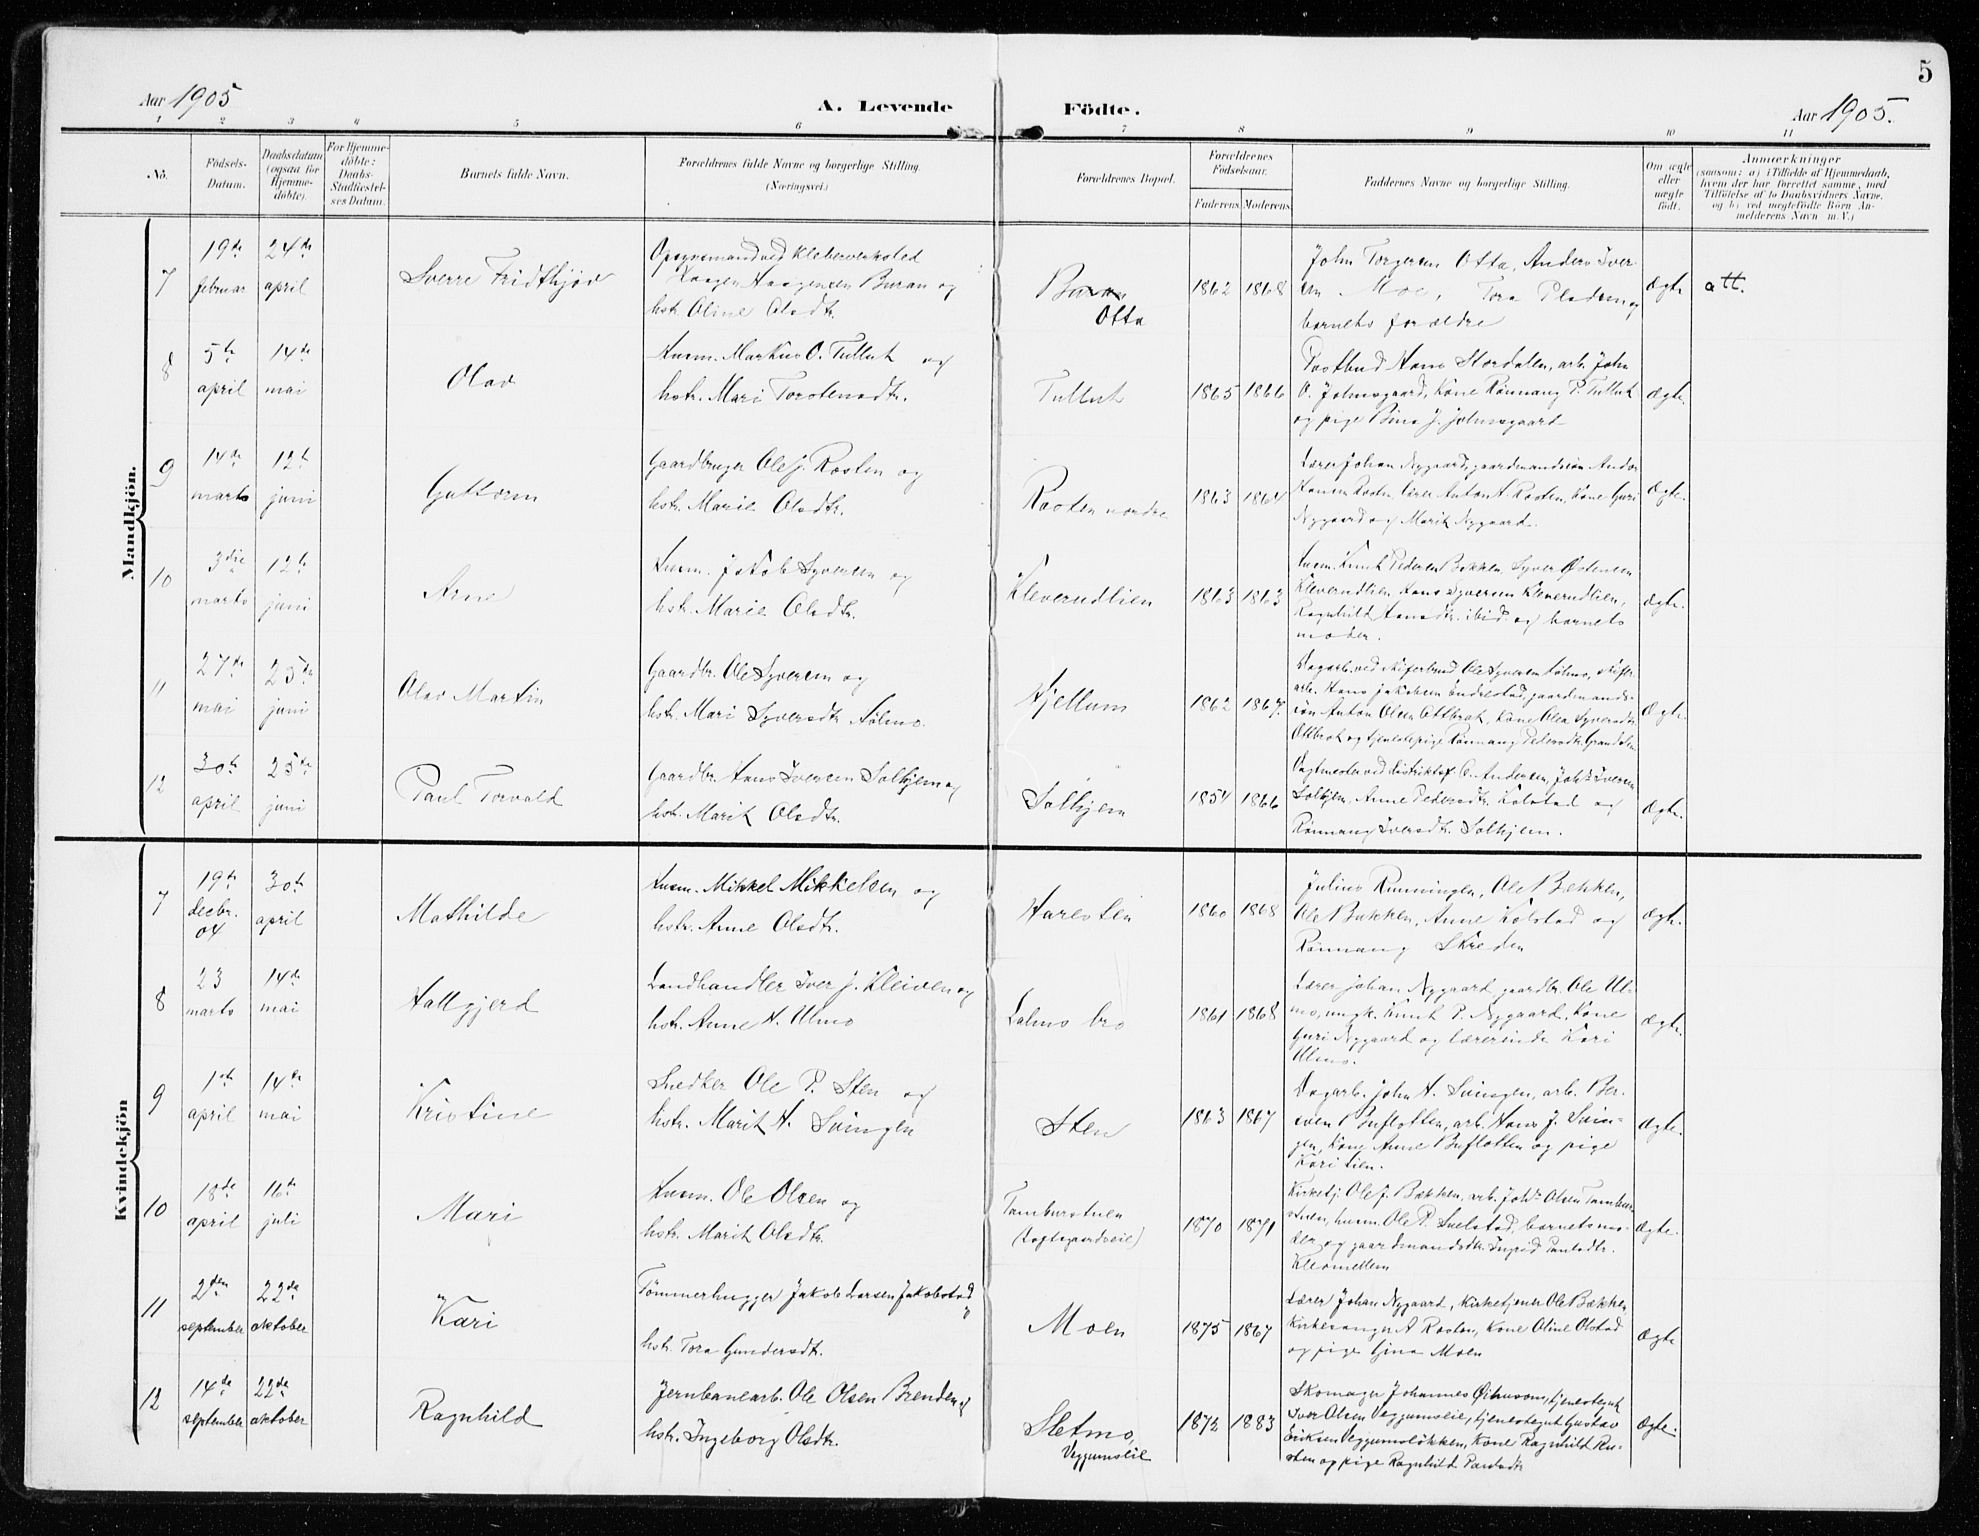 5
Aar 1905
A. Levende Födte.
Aar 1905.
1 2 3 4 5 6 7 8 9 10 11
No.
Födsels-
Datum.
Daabsdatum
(ogsaa for
Hjemme-
döbte).
For Hjemme-
döbte:
Daabs-
Stadfæstel-
ses Datum.
Barnets fulde Navn.
Forældrenes fulde Navne og borgerlige Stilling.
(Næringsvei.)
Forældrenes Bopæl.
Forældrenes
Födselsaar.
Faderens. Moderens.
Faddernes Navne og borgerlige Stilling.
Om ægte
eller
uægte
födt.
Anmærkninger
(saasom: a) i Tilfælde af Hjemmedaab,
hvem der har forrettet samme, med
Tilföielse af to Daabsvidners Navne,
og b) ved uægtefödte Börn An-
melderens Navn m. V.)
Mandkjön.
7
19de februar
24de april
Sverre Fridthjov
Opsynsmand ved Kleberverksted
Haagen Haagensen Buran og
hstr. Oline Olsdtr.
Buran
Otta
1862 1868
John Torgersen Otta, Anders Iver-
sen Moe, Tora og
barnets forældre
Ægte
att.
8
5te april
14de mai
Olav
Husm. Markus O. Tullut og
hstr. Mari Torstensdtr.
Tullut
1865 1866
Postbud Hans Stordalen, arb. John
O. Johnsgaard, Kone Rønnaug P. Tullut
og pige J. Johnsgaard
Ægte.
9
14de marts
12te juni
Guttorm
Gaardbruger Ole J. Rosten og
hstr. Marie Olsdtr.
Rosten nordre
1863 1864
Lærer Johan Nygaard, gaardmandssøn
Hansen Rosten, lærer Anton A. Rosten, Kone Guri
Nygaard og Marit Nygaard.
Ægte.
10
3die marts
12te juni
Arne
Husm. Jakob Syversen og
hstr. Marie Olsdtr.
Kleverudlien
1863 1863
Husm. Knut Pedersen Bakken, Syver Østensen
Kleverudlien, Hans Syversen Kleverudlien,
Ragnhild Hansdtr. ibid. og barnets
moder.
Ægte.
11
27de mai
25de juni
Olav Martin
Gaardbr. Ole Syversen og
hstr. Mari Syversdtr. Sølmo.
Hjellum
1862 1867.
Dagarb. ved Skiferbrud Ole Syversen Sølmo, skifer
arb. Hans Jakobsen Endrestad, gaardmands-
søn Anton Olsen Ottbrot, Kone Olea Syversdtr.
Ottbrot og tjenestepige Rønnaug Pedersdtr. Grandalen
Ægte.
12
30te april
25de juni
Paul Torvald
Gaardbr. Hans Iversen Solhjem og
hstr. Marit Olsdtr.
Solhjem
1854 1866
Vagtmester ved distriktsf. O. Andersen, Johs Iversen
Solhjem, Anne Pedersdtr. Kolstad og
Rønnaug Iversdtr. Solhjem.
Ægte.
Kvindekjön
7
19de decbr. 04
30te april
Mathilde
Husm. Mikkel Mikkelsen og
hstr. Anne Olsdtr.
Harestien
1860 1868
Julius Rumningen, Ole Bekken,
Ole Bakken, Anne Kolstad og
Rønnaug Skreden
Ægte.
8
23 marts
14de mai
Hallgjerd
Landhandler Iver J. Kleiven og
hstr. Anne H. Ulmo
Lalmo bro
1861 1868
Lærer Johan Nygaard, gaardbr. Ole Ul-
mo, ungk. Knut P. Nygaard, Kone
Guri Nygaard og lærerinde Kari
Ulmo.
Ægte.
9
1ste april
14de mai
Kristine
Snedker Ole P. Sten og
hstr. Marit H. Svingen
Sten
1863 1867
Dagarb. John H. Svingen, arb. Ber-
sven Buflotten, arb. Hans J. Svin-
gen, Kone Anne Buflotten og pige
Kari Lien.
Ægte.
10
18de april
16de juli
Mari
Husm. Ole Olsen og
hstr. Marit Olsdtr.
Tamburstuen
1870 1871
Kirketj. Ole J. Bækken, arb. Johs Olsen Tambur-
stuen, husm. Ole P. Snelstad, barnets mo-
der og gaardmandsdtr. Ingrid Paulsdtr.
Kleomellem
Ægte.
11
2den september
22de oktober
Kari
Tømmerhugger Jakob Larsen Jakobstad og
hstr. Tora Gundersdtr.
Moen
1875 1867
Lærer Johan Nygaard, Kirketjener Ole Bækken,
Kirkesanger A Rosten, Kone Oline Olstad
og pige Gina Moen
Ægte
12
14de september
22de oktober
Ragnhild
Jernbanearb. Ole Olsen Brenden og
hstr. Ingeborg Olsdtr.
Sletmo,
Veggumslie
1872 1883
Skomager Johannes tjenestegut
Iver Olsen Veggumslie, tjenestegut Gustav
Eriksen Veggumsløkken, Kone Ragnhild Ru-
sten og pige Ragnhild Paulsdtr
Ægte.